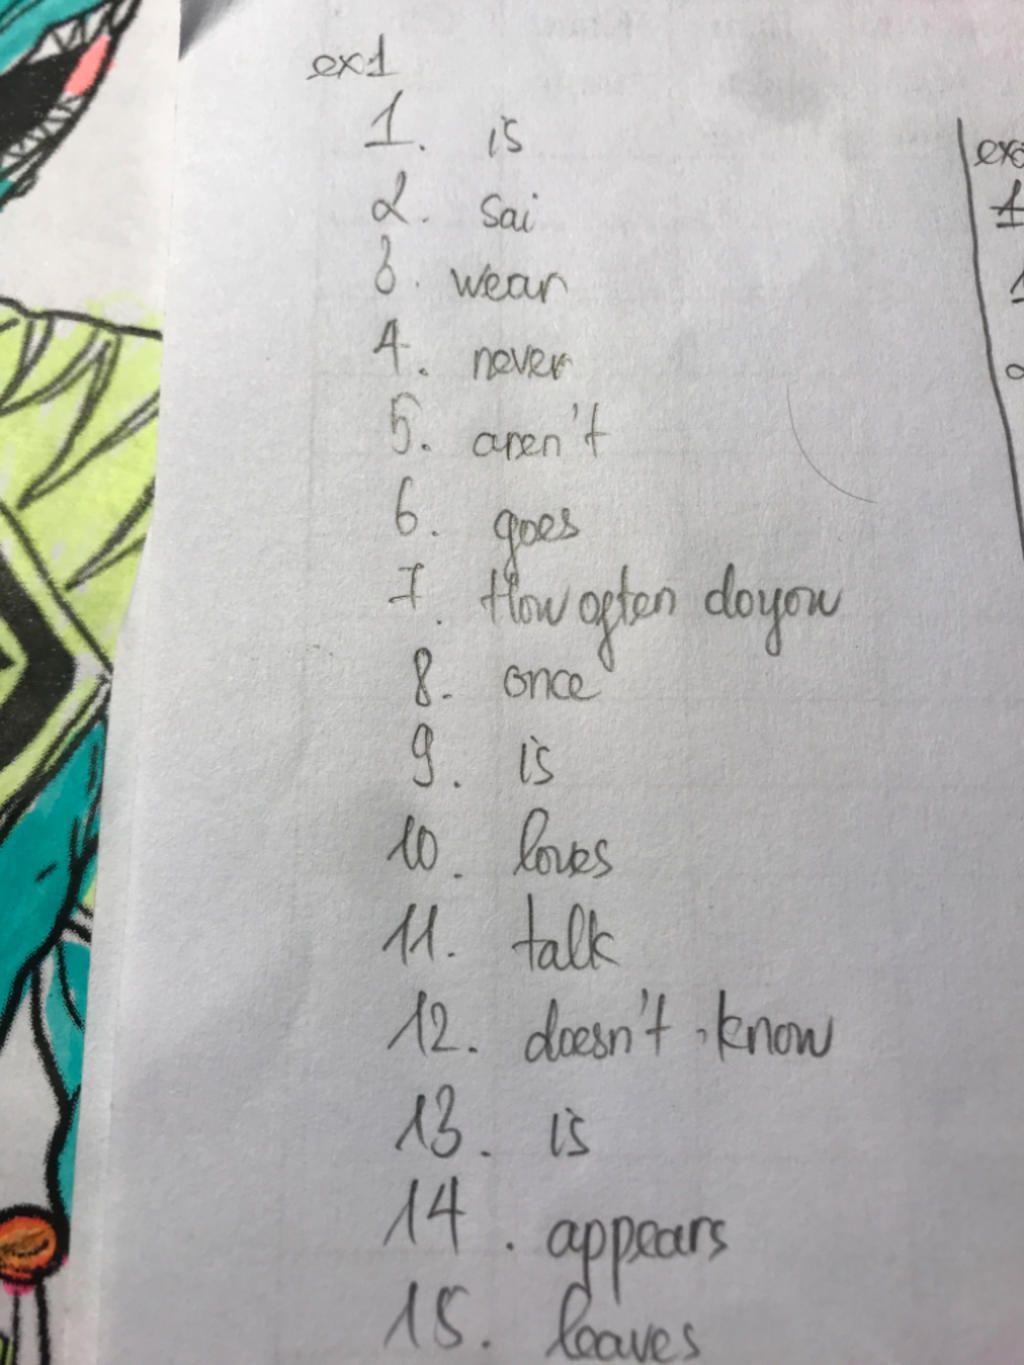 ex1
1. is
2. sai
3. wear
4. never
5. aren't
6. goes
7. How often do you
8. once
9. is
10. loves
11. talk
12. doesn't, know
13. is
14. appears
15. leaves
1
1